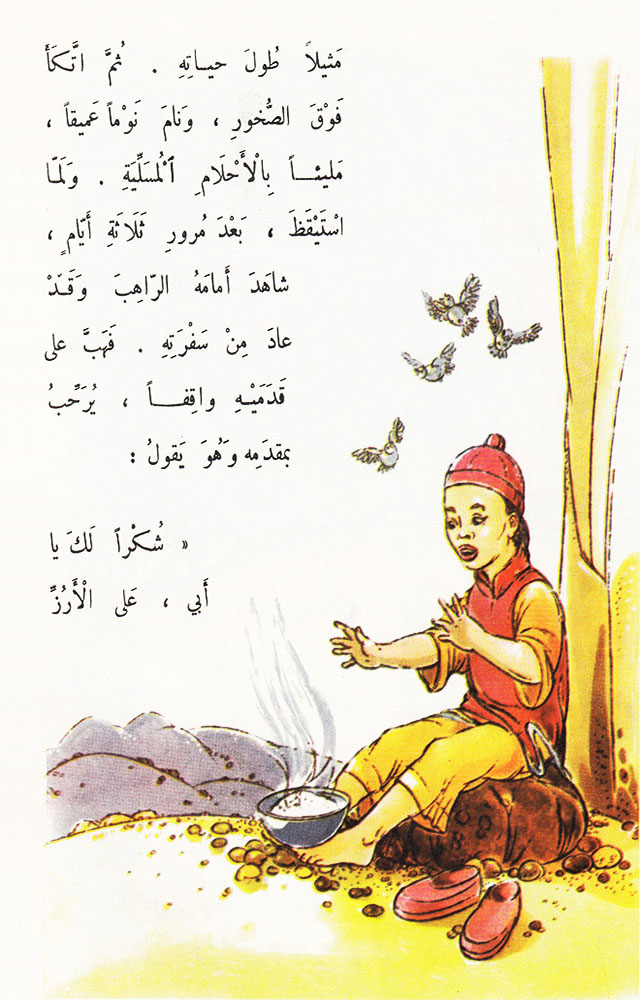 مَثيلاً طُولَ حيـاتِهِ . ثُمَّ اتَّكَأَ
فَوْقَ الصُّخورِ ، وَنامَ نَوْماً عَميقاً ،
مَليئـاً بِالْأَحْلامِ الْمُسَلِّيَةِ . وَلَمّا
اسْتَيْقَظَ ، بَعْدَ مُرورِ ثَلاثَةِ أَيّامٍ ،
شاهَدَ أَمامَهُ الرّاهِبَ وَقَدْ
عادَ مِنْ سَفْرَتِهِ . فَهَبَّ على
قَدَمَيْهِ واقِفـاً ، يُرَحِّبُ
بمقدَمِه وَهُوَ يَقولُ :
« شُكْراً لَكَ يا
أَبي ، عَلى الْأَرُزِّ